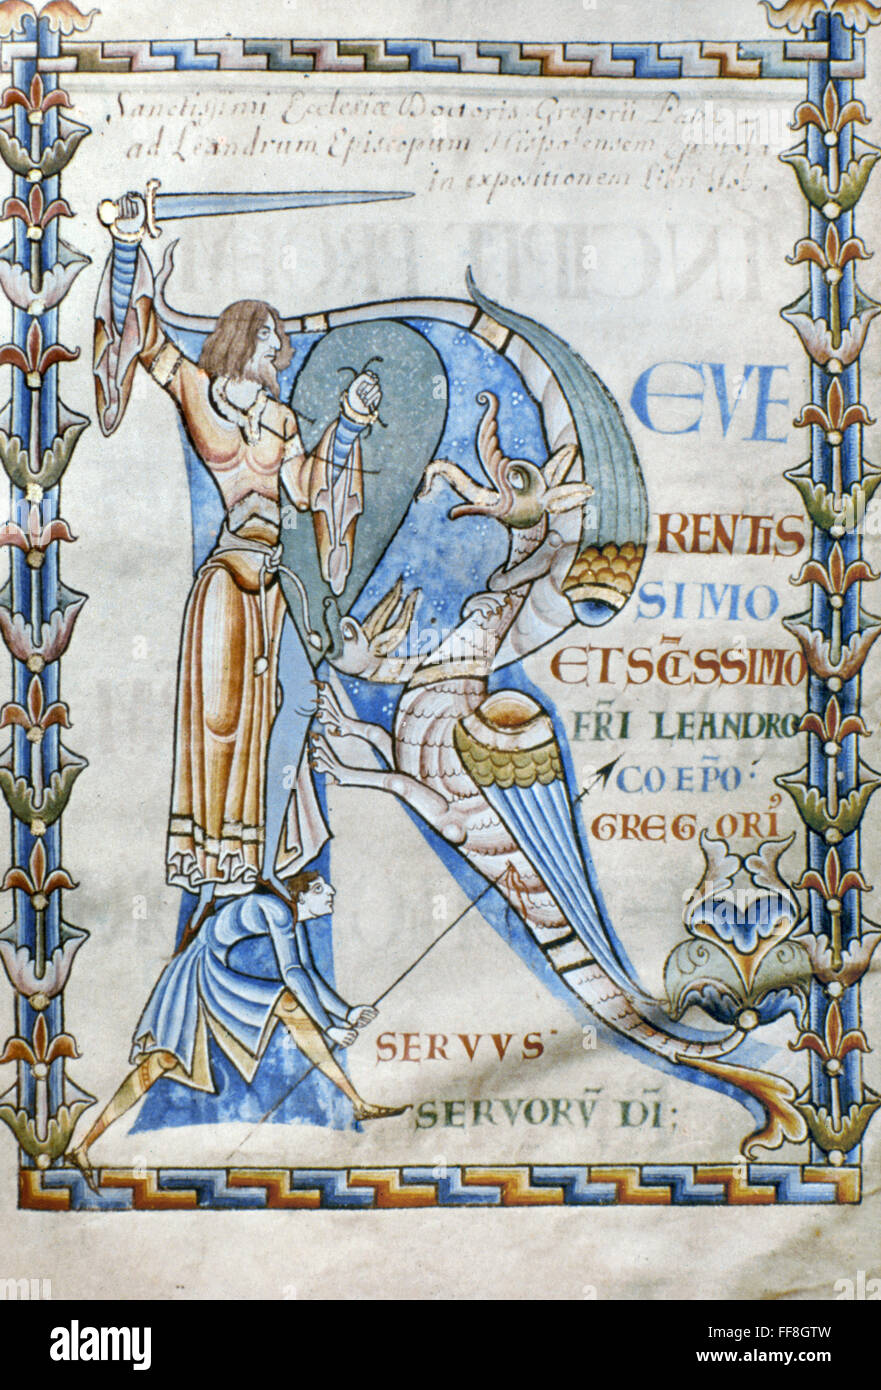 Sanctissimi Ecclesiæ Doctoris Gregorii Papæ
ad Leandrum Episcopum Hispalensem Epistola
in expositionem libri Iob.
R EVE
RENTIS
SIMO
ET SC̄ISSIMO
FR̄I LEANDRO
COEP̄O·
GREGORI⁹
SERVVS·
SERVORŪ DĪ;
alamy
Image ID: FF8GTW
www.alamy.com